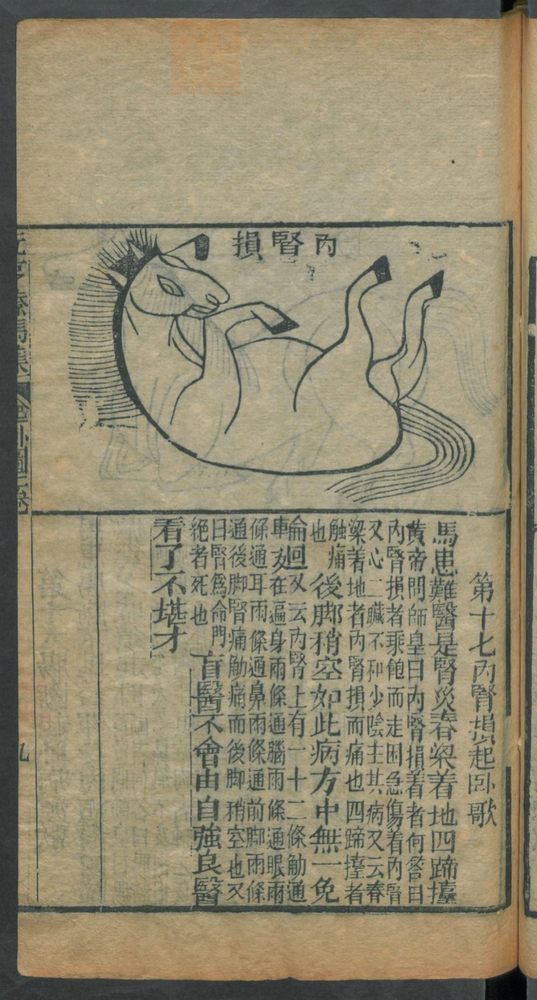 內腎損
第十七內腎損起臥歌
馬患難醫是腎災脊梁着地四蹄擡
黃帝問師皇曰內腎損着者何荅曰
內腎損者乘飽而走困急傷着內腎
又心二臟不和少陰主其病又云脊
梁着地者內腎損而痛也四蹄擡者
觸痛也
後脚稍空如此病方中無一免
侖迴
又云內腎上有一十二條觔通
車支在遍身兩條通腦兩條通眼兩
條通耳兩條通鼻兩條通前脚兩條
通後脚腎痛觔痛而後脚稍空也又
曰腎爲命門
絕者死也
盲醫不會由自強良醫
看了不堪才
九